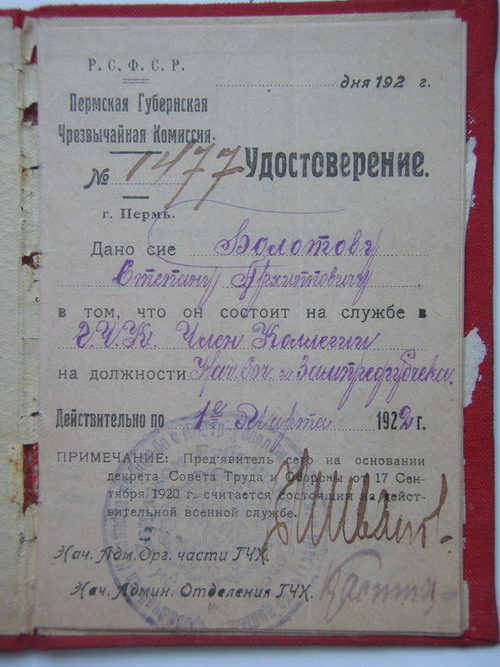 Р. С. Ф. С. Р.
дня 192 г.
Пермская Губернская
Чрезвычайная Комиссия.
№ 1477 Удостоверение.
г. Пермь.
Дано сие Болотову
Степану Архипповичу
в том, что он состоит на службе в
Г.Ч.К. Член Коллегии
на должности Нач. Зампредгубчека.
Действительно по 1е Марта 1922 г.
ПРИМЕЧАНИЕ: Пред'явитель сего на основании
декрета Совета Труда и Обороны от 17 Сен-
тября 1920 г. считается состоящий на дейст-
вительной военной службе.
Нач. Адм.Орг. части ГЧК.
Нач. Админ. Отделения ГЧК.